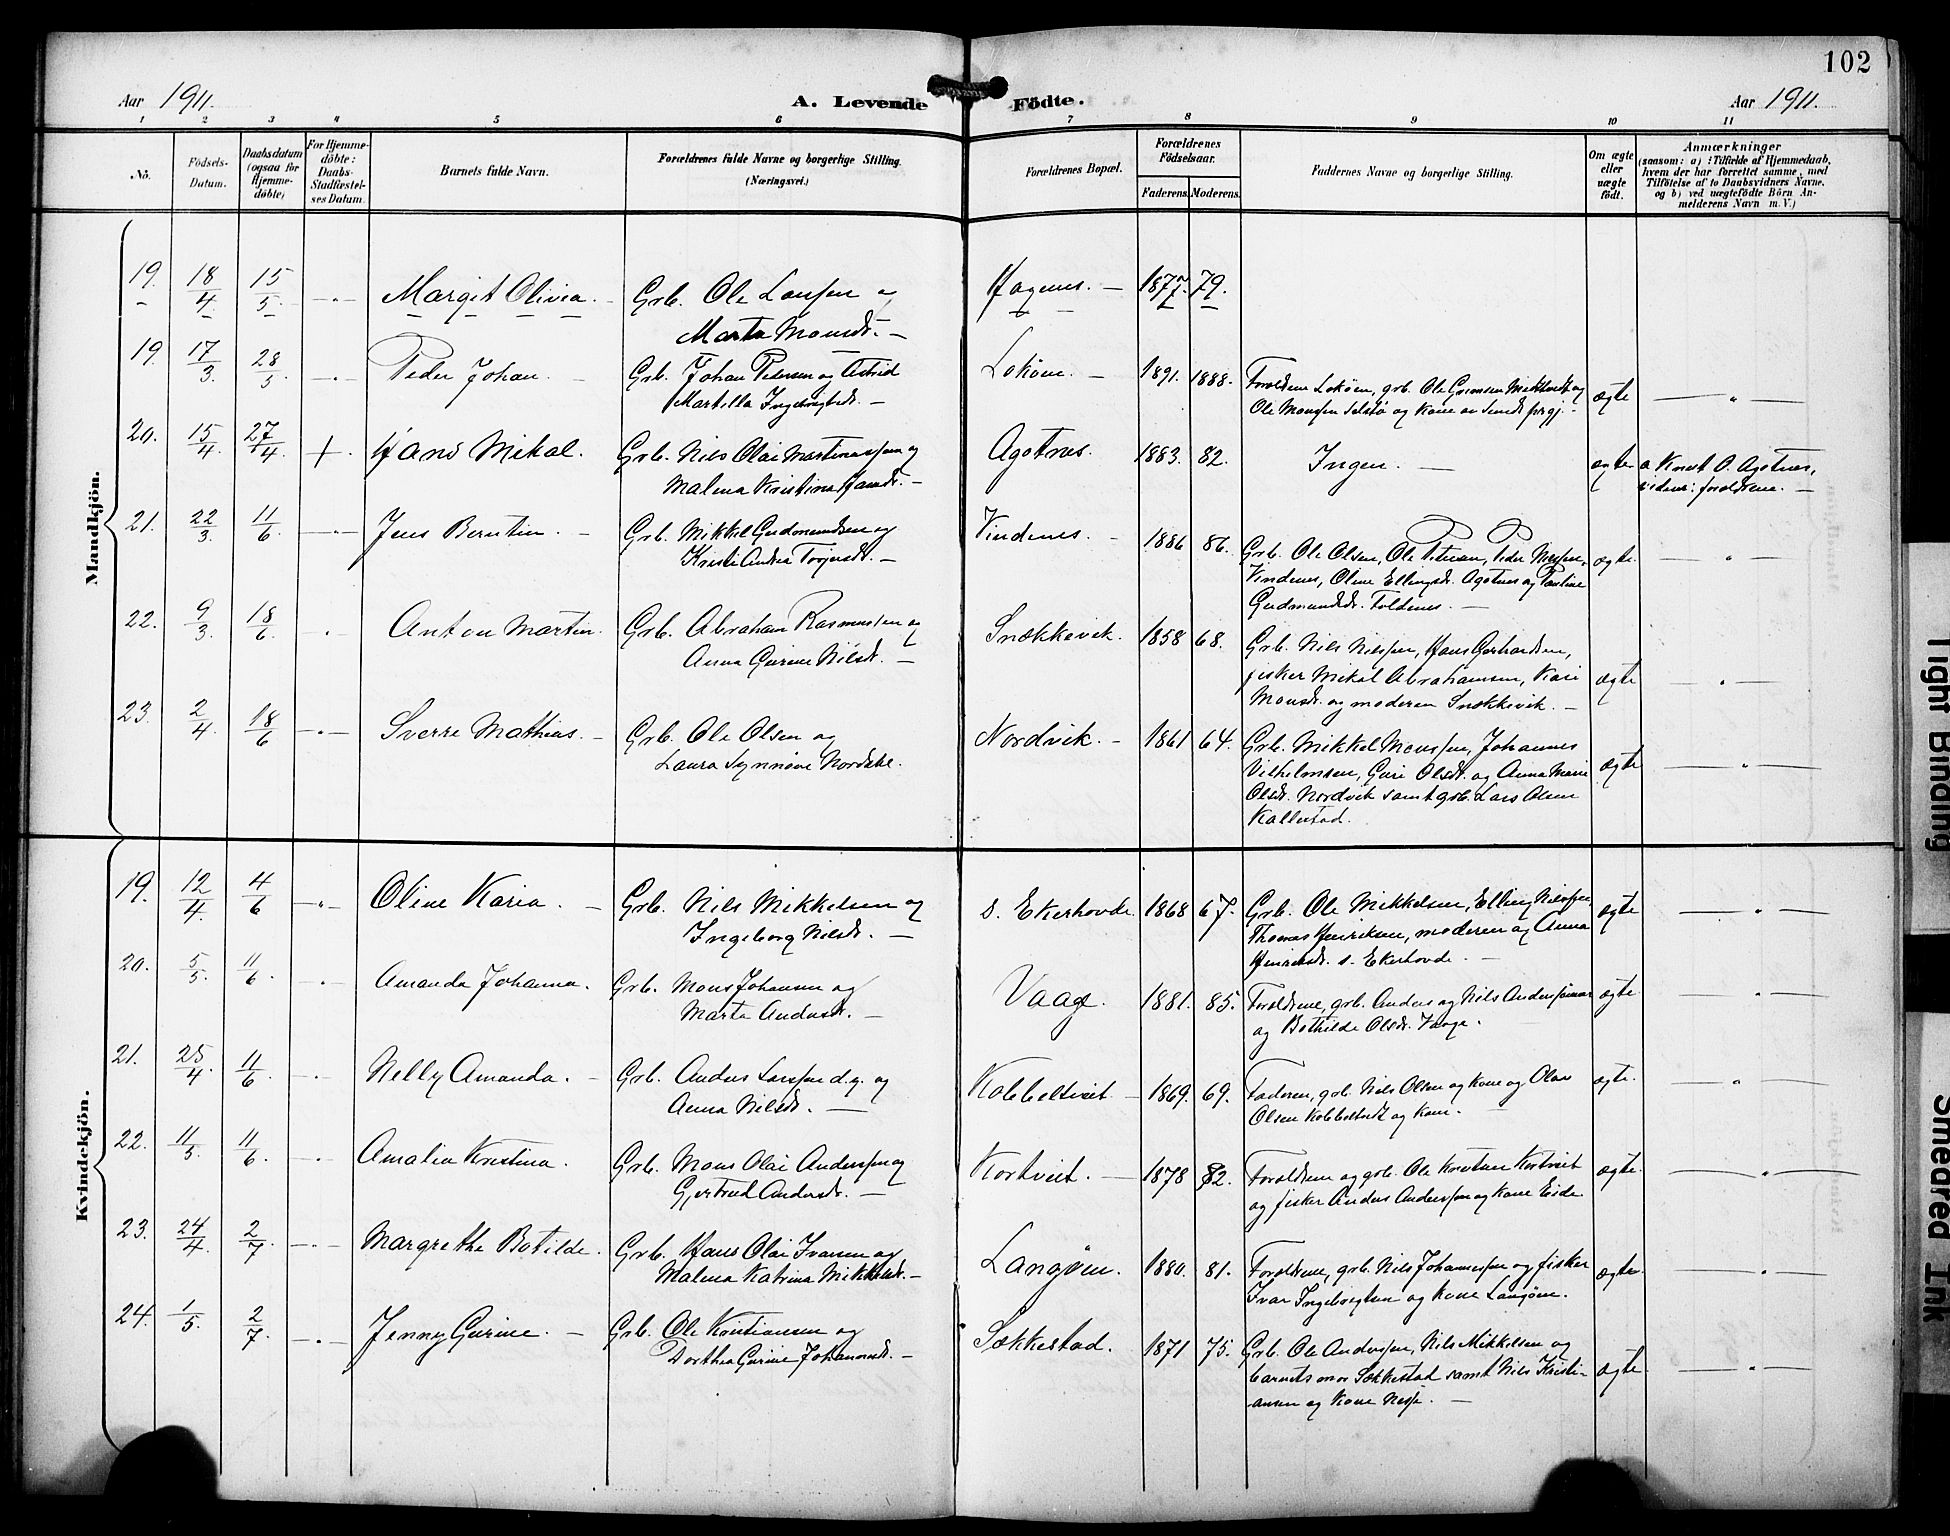 102
Aar 1911.
A. Levende Födte.
Aar 1911.
1 2 3 4 5 6 7 8 9 10 11
No.
Födsels-
Datum.
Daabsdatum
(ogsaa for
Hjemme-
döbte)
For Hjemme-
döbte:
Daabs-
Stadfæstel-
ses Datum.
Barnets fulde Navn.
Forældrenes fulde Navne og borgerlige Stilling.
(Næringsvei.)
Forældrenes Bopæl.
Forældrenes
Födselsaar.
Faderens. Moderens.
Faddernes Navne og borgerlige Stilling.
Om ægte
eller
uægte
födt.
Anmærkninger
(saasom: a) i Tilfælde af Hjemmedaab,
hvem der har forrettet samme, med
Tilföielse af to Daabsvidners Navne,
og b) ved uægtefödte Börn An-
melderens Navn m. V.)
Mandkjön.
19. 18/4 15/5 Margit Olivia. Grb. Ole Larssen og
Marta Monsdr. Hagenes. 1877. 79.
19. 17/3 28/5 Peder Johan. Grb. Johan Pedersen og Astrid
Martilla Ingebrigtsdr. Lokøen. 1891. 1888. Forældrene Lokøen, grb. Ole Grimsen og
Ole Monssen Selstø og kone av Sund prgj. ægte "
20. 15/4 27/4 + Hans Mikal. Grb. Nils Olai Martinussen og
Malena Kristina Hansdr. Agotnes. 1883. 82. Ingen. ægte a Knut O. Agotnes,
vidner: forældrene.
21. 22/3 11/6 Jens Berntin. Grb. Mikkel Gudmundsen og
Kristi Andrea Torjersdr. Vindenes. 1886 86. Grb. Ole Olsen, Ole Petersen, Peder Nilssen,
Vindenes, Oline Ellingsdr. Agotnes og Pauline
Gudmundsdr. Foldenes. ægte "
22. 9/3 18/6 Anton Martin. Grb. Abraham Rasmussen og
Anna Gurine Nilsdr. Snækkevik. 1858 68. Grb. Nils Nilssen, Hans Gerhardsen,
fisker Mikal Abrahamsen, Kari
Monsdr. og moderen Snækkevik. ægte "
23. 2/4 18/6 Sverre Mathias. Grb. Ole Olsen og
Laura Synnöve Nordahl. Nordvik. 1861 64. Grb. Mikkel Monssen, Johannes
Vilhelmsen, Guri Olsdr. og Anna Marie
Olsdr. Nordvik samt grb. Lars Olsen
Kallestad. ægte "
Kvindekjön.
19. 12/4 4/6 Oline Karia. Grb. Nils Mikkelsen og
Ingeborg Nilsdr. s. Ekerhovde. 1868 67. Grb. Ole Mikkelsen, Elling Nilssen,
Thomas Henriksen, moderen og Anna
Henriksdr. s. Ekerhovde. ægte "
20. 5/5 11/6 Amanda Johanna. Grb. Mons Johansen og
Marta Andersdr. Vaage. 1881. 85. Forældrene, grb. Anders og Nils Anderssønner
og Bothilde Olsdr. Vaage. ægte "
21. 25/4 11/6 Nelly Amanda. Grb. Anders Larssen d.y. og
Anna Nilsdr. Kobbeltveit. 1869. 69. Faderen, grb. Nils Olsen og kone og Olav
Olsen Kobbeltveit og kone. ægte "
22. 11/5 11/6 Amalia Kristina. Grb. Mons Olai Anderssen og
Gjertrud Andersdr. Kortveit. 1878 82. Forældrene og grb. Ole Knutsen Kortveit
og fisker Anders Anderssen og kone Eide. ægte "
23. 24/4 2/7 Margrethe Botilde. Grb. Hans Olai Ivarsen og
Malena Katrina Mikkelsdr. Langøen. 1880. 81. Forældrene, grb. Nils Johannessen og fisker
Ivar Ingebrigtsen og kone Langøen. ægte "
24. 1/5 2/7 Jenny Gurine. Grb. Ole Kristiansen og
Dorthea Gurine Johannesdr. Sækkestad. 1871 75. Grb. Ole Anderssen, Nils Mikkelsen og
barnets mor Sækkestad samt Nils Kristi-
ansen og kone Nesse. ægte "
Tight Binding
Smeared Ink